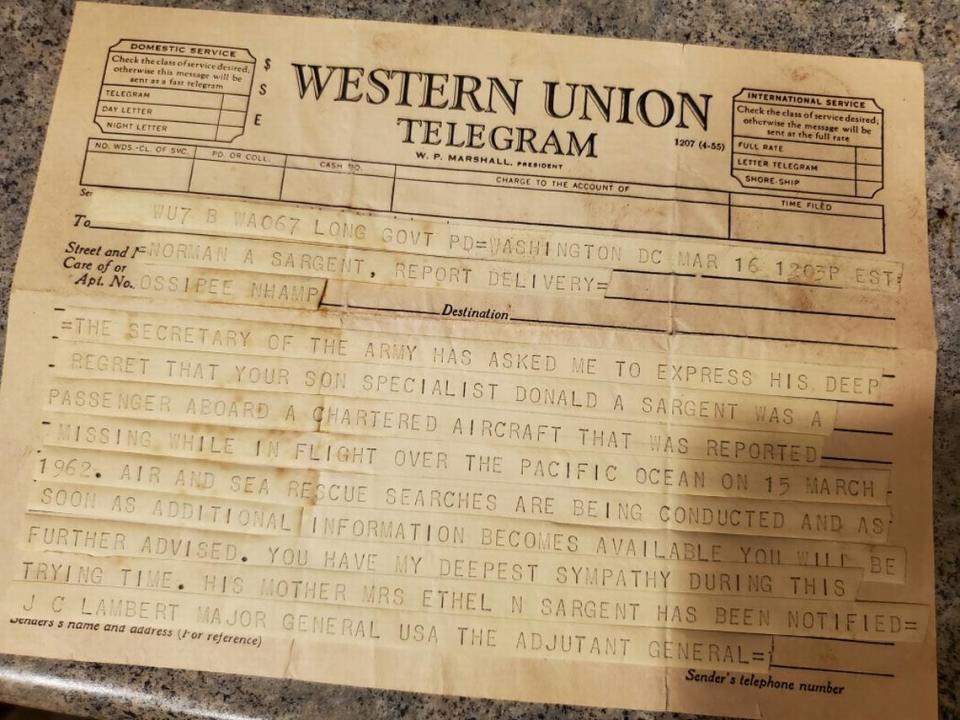 DOMESTIC SERVICE
Check the class of service desired;
otherwise this message will be
sent as a fast telegram
TELEGRAM
DAY LETTER
NIGHT LETTER
$
S
E
WESTERN UNION
TELEGRAM
W. P. MARSHALL, PRESIDENT
1207 (4-55)
INTERNATIONAL SERVICE
Check the class of service desired;
otherwise the message will be
sent at the full rate
FULL RATE
LETTER TELEGRAM
SHORE-SHIP
NO. WDS.-CL. OF SVC.
PD. OR COLL.
CASH NO.
CHARGE TO THE ACCOUNT OF
TIME FILED
To WU7 B WA067 LONG GOVT PD=WASHINGTON DC MAR 16 1203P EST=
Street and =NORMAN A SARGENT, REPORT DELIVERY=
Care of or
Apt. No. OSSIPEE NHAMP
Destination
=THE SECRETARY OF THE ARMY HAS ASKED ME TO EXPRESS HIS DEEP
REGRET THAT YOUR SON SPECIALIST DONALD A SARGENT WAS A
PASSENGER ABOARD A CHARTERED AIRCRAFT THAT WAS REPORTED
MISSING WHILE IN FLIGHT OVER THE PACIFIC OCEAN ON 15 MARCH
1962. AIR AND SEA RESCUE SEARCHES ARE BEING CONDUCTED AND AS
SOON AS ADDITIONAL INFORMATION BECOMES AVAILABLE YOU WILL BE
FURTHER ADVISED. YOU HAVE MY DEEPEST SYMPATHY DURING THIS
TRYING TIME. HIS MOTHER MRS ETHEL N SARGENT HAS BEEN NOTIFIED=
J C LAMBERT MAJOR GENERAL USA THE ADJUTANT GENERAL=
Senders's name and address (For reference)
Sender's telephone number